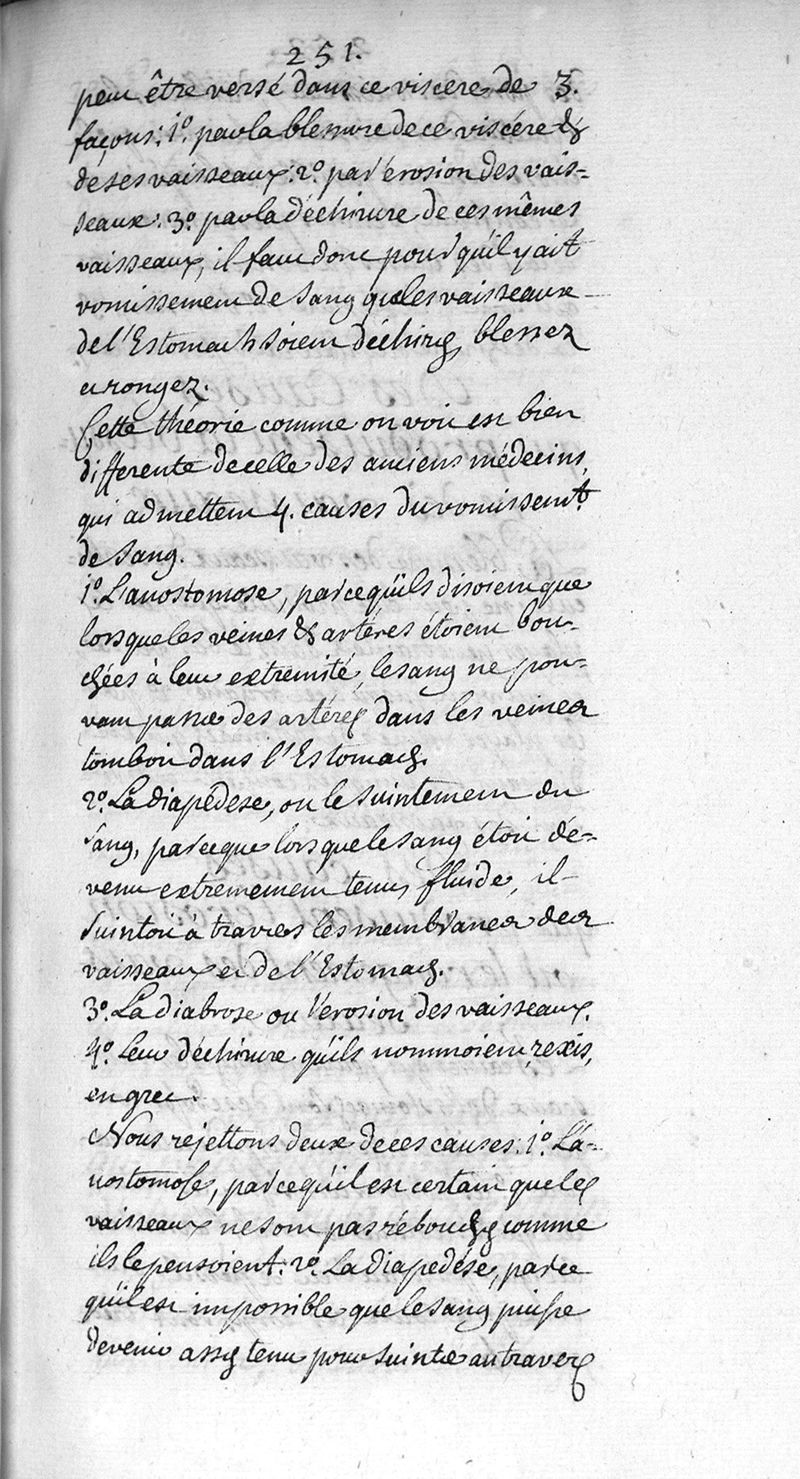 251.
peut être versé dans ce viscere de 3.
façons: 1.º par la blessure de ce viscére &
de ses vaisseaux: 2.º par l'érosion des vais-
seaux: 3.º par la déchirure de ces mêmes
vaisseaux, il faut donc pour qu'il y ait
vomissement de sang que les vaisseaux
de l'Estomach soient déchirés, blessez
et rongez.
Cette théorie comme on voit est bien
differente de celle des anciens médecins,
qui admettent 4. causes du vomissemt.
de sang.
1.º L'anostomose, parcequ'ils disoient que
lorsque les veines & artères étoient bou-
chées à leur extremité, le sang ne pou-
vant passer des artéres dans les veines
tomboit dans l'Estomach.
2.º La diapédese, ou le suintement du
sang, parceque lorsque le sang étoit de-
venu extremement tenu, fluide, il
suintoit à travers les membranes des
vaisseaux et de l'Estomach.
3.º La diabrose ou l'erosion des vaisseaux.
4.º Leur déchirure qu'ils nommoient, rexis,
en grec.
Nous rejettons deux de ces causes: 1.º L'a-
nostomose, parcequ'il est certain que les
vaisseaux ne sont pas rébouchés comme
ils le pensoient: 2.º La diapedése, parce
qu'il est impossible que le sang puisse
devenir assés tenu pour suinter au travers